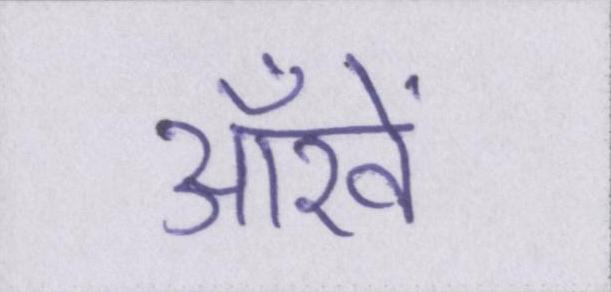 आँखें